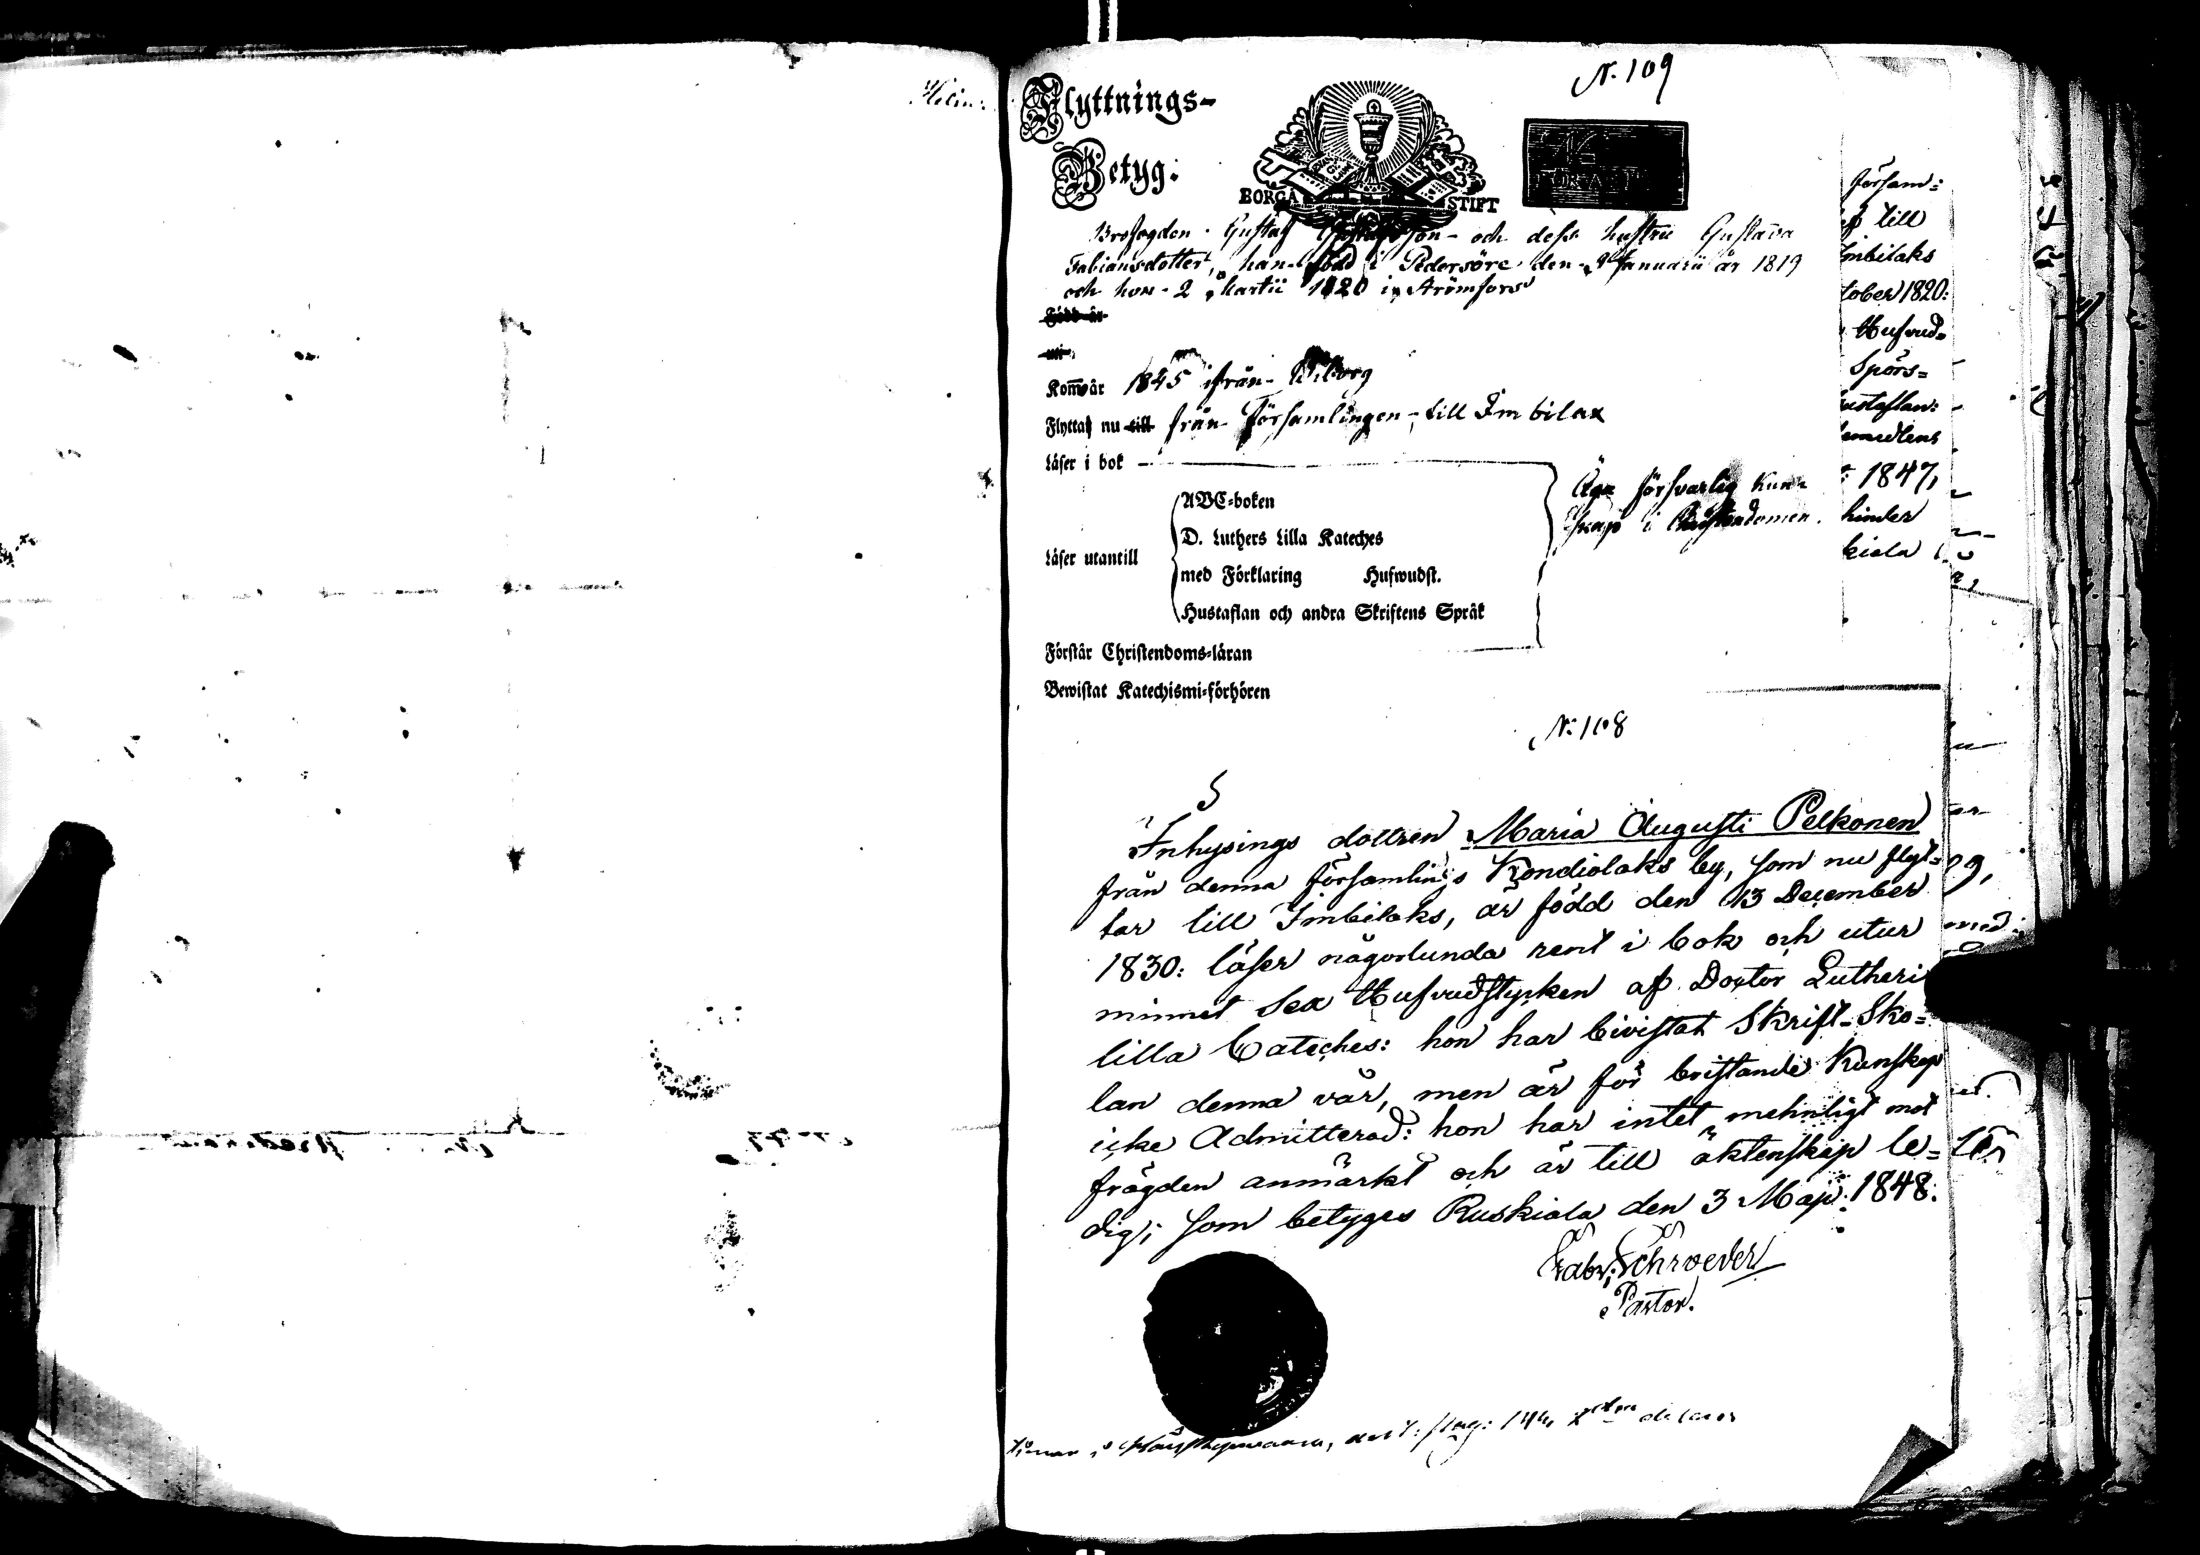 Helin:
N. 109
Flyttnings-
Betyg:
BORGÅ STIFT
Brofogden Gustaf och dess hustru Gustava
Fabiansdotter, han född i Pedersöre den 9 Januarii år 1819
och hon 2 Martii 1820 i Strömfors
Född år
Kom̄ år 1845 ifrån Wiborg
Flyttat nu till från Församlingen till Imbilax
Läser i bok
Äga försvarlig Kun-
skap i Christendomen.
Läser utantill
ABC-boken
D. Luthers Lilla Kateches
med Förklaring Hufwudst.
Hustaflan och andra Skriftens Språk
Förstår Christendoms-läran
Bewistat Katechismi-förhören
Försam=
till
Imbilaks
tober 1820:
Hufvud=
Spörs=
ustaflan:
1847,
hinder
kiala
N: 108
Inhysings dottren Maria Augusti Pelkonen
från denna församlings Kondiolaks by, som nu flyt=
tar till Imbilaks, är född den 13 December
1830: läser någorlunda rent i bok och utur
minnet Sex Hufvudstycken af Doctor Lutheri
lilla Cateches: hon har bivistat Skrift-Sko=
lan denna vår, men är för bristande Kunskap
icke Admitterad: hon har intet mehnligt mot
frägden anmärkt och är till äktenskap le=
dig; som betyges Ruskiala den 3 Maji: 1848:
Gabr: Schroeder
Pastor.